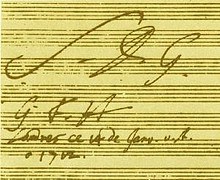 S. D. G.
G F H
Londres ce de Janv. v. st.
1712.